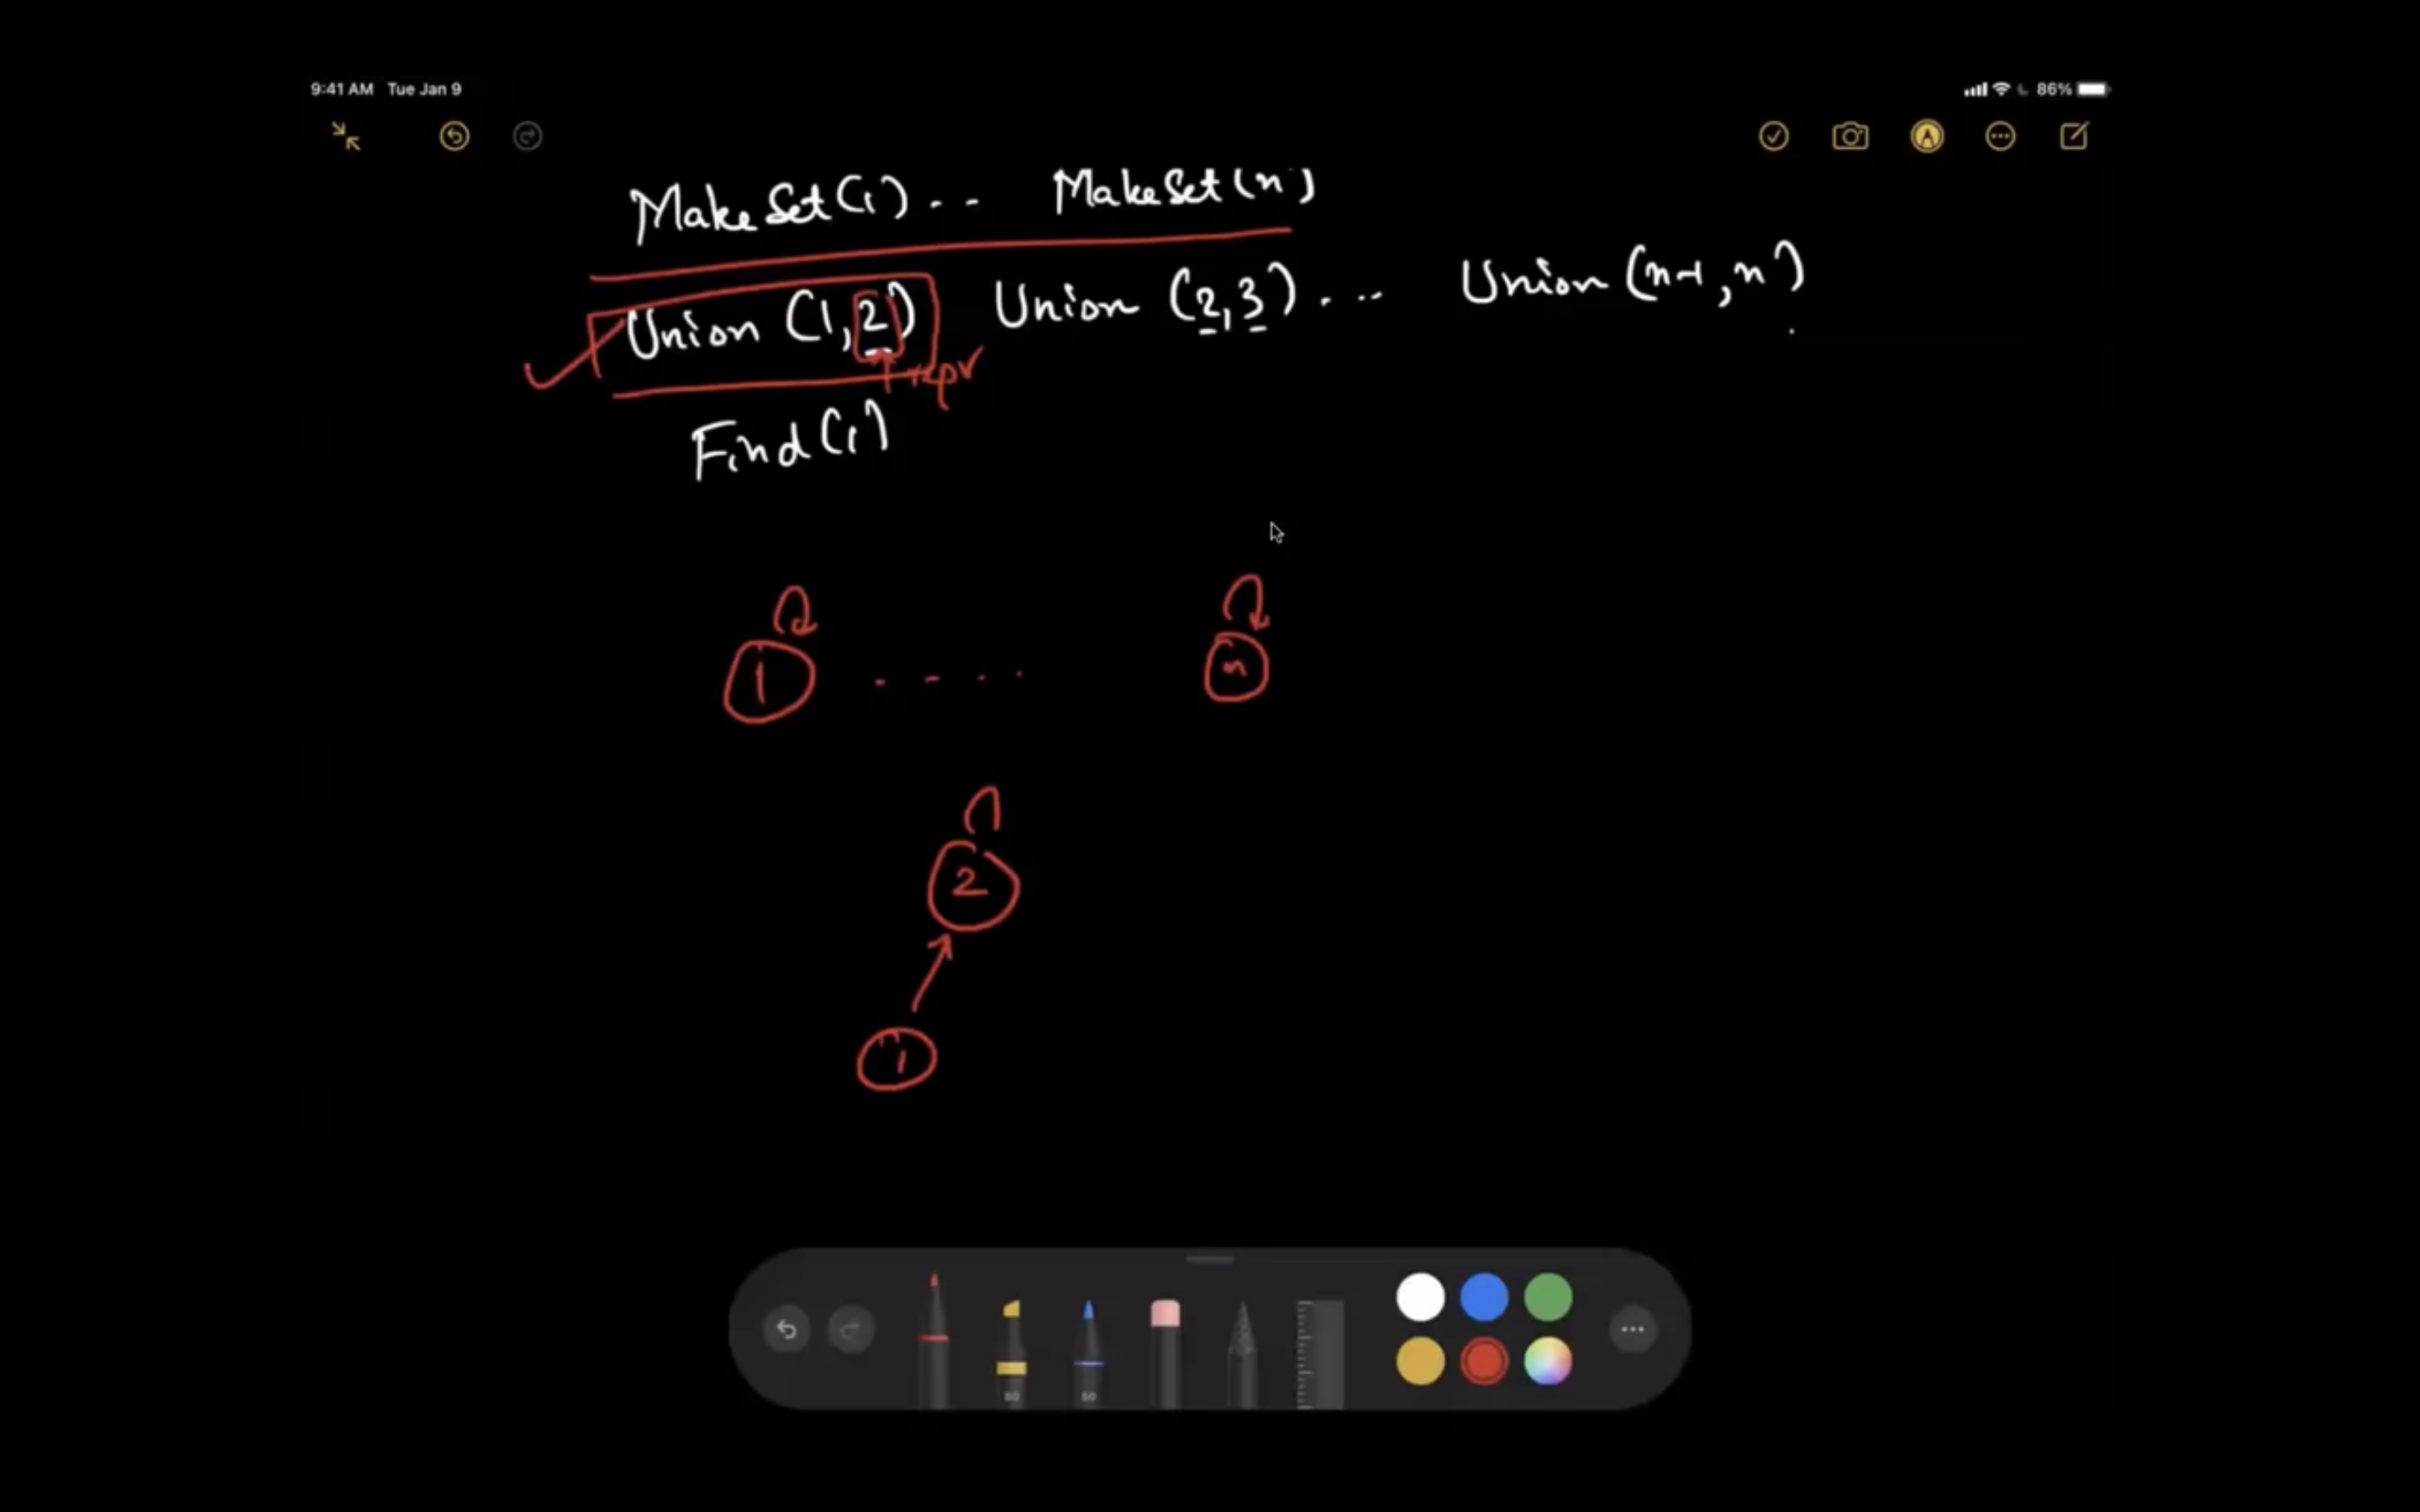 9:41 AM Tue Jan 9 86%
MakeSet(1) . . MakeSet(n)
Union (1,2) Union (2,3) . . . Union (n-1, n)
repr
Find(1)
1 . . . . n
2
1
80 50